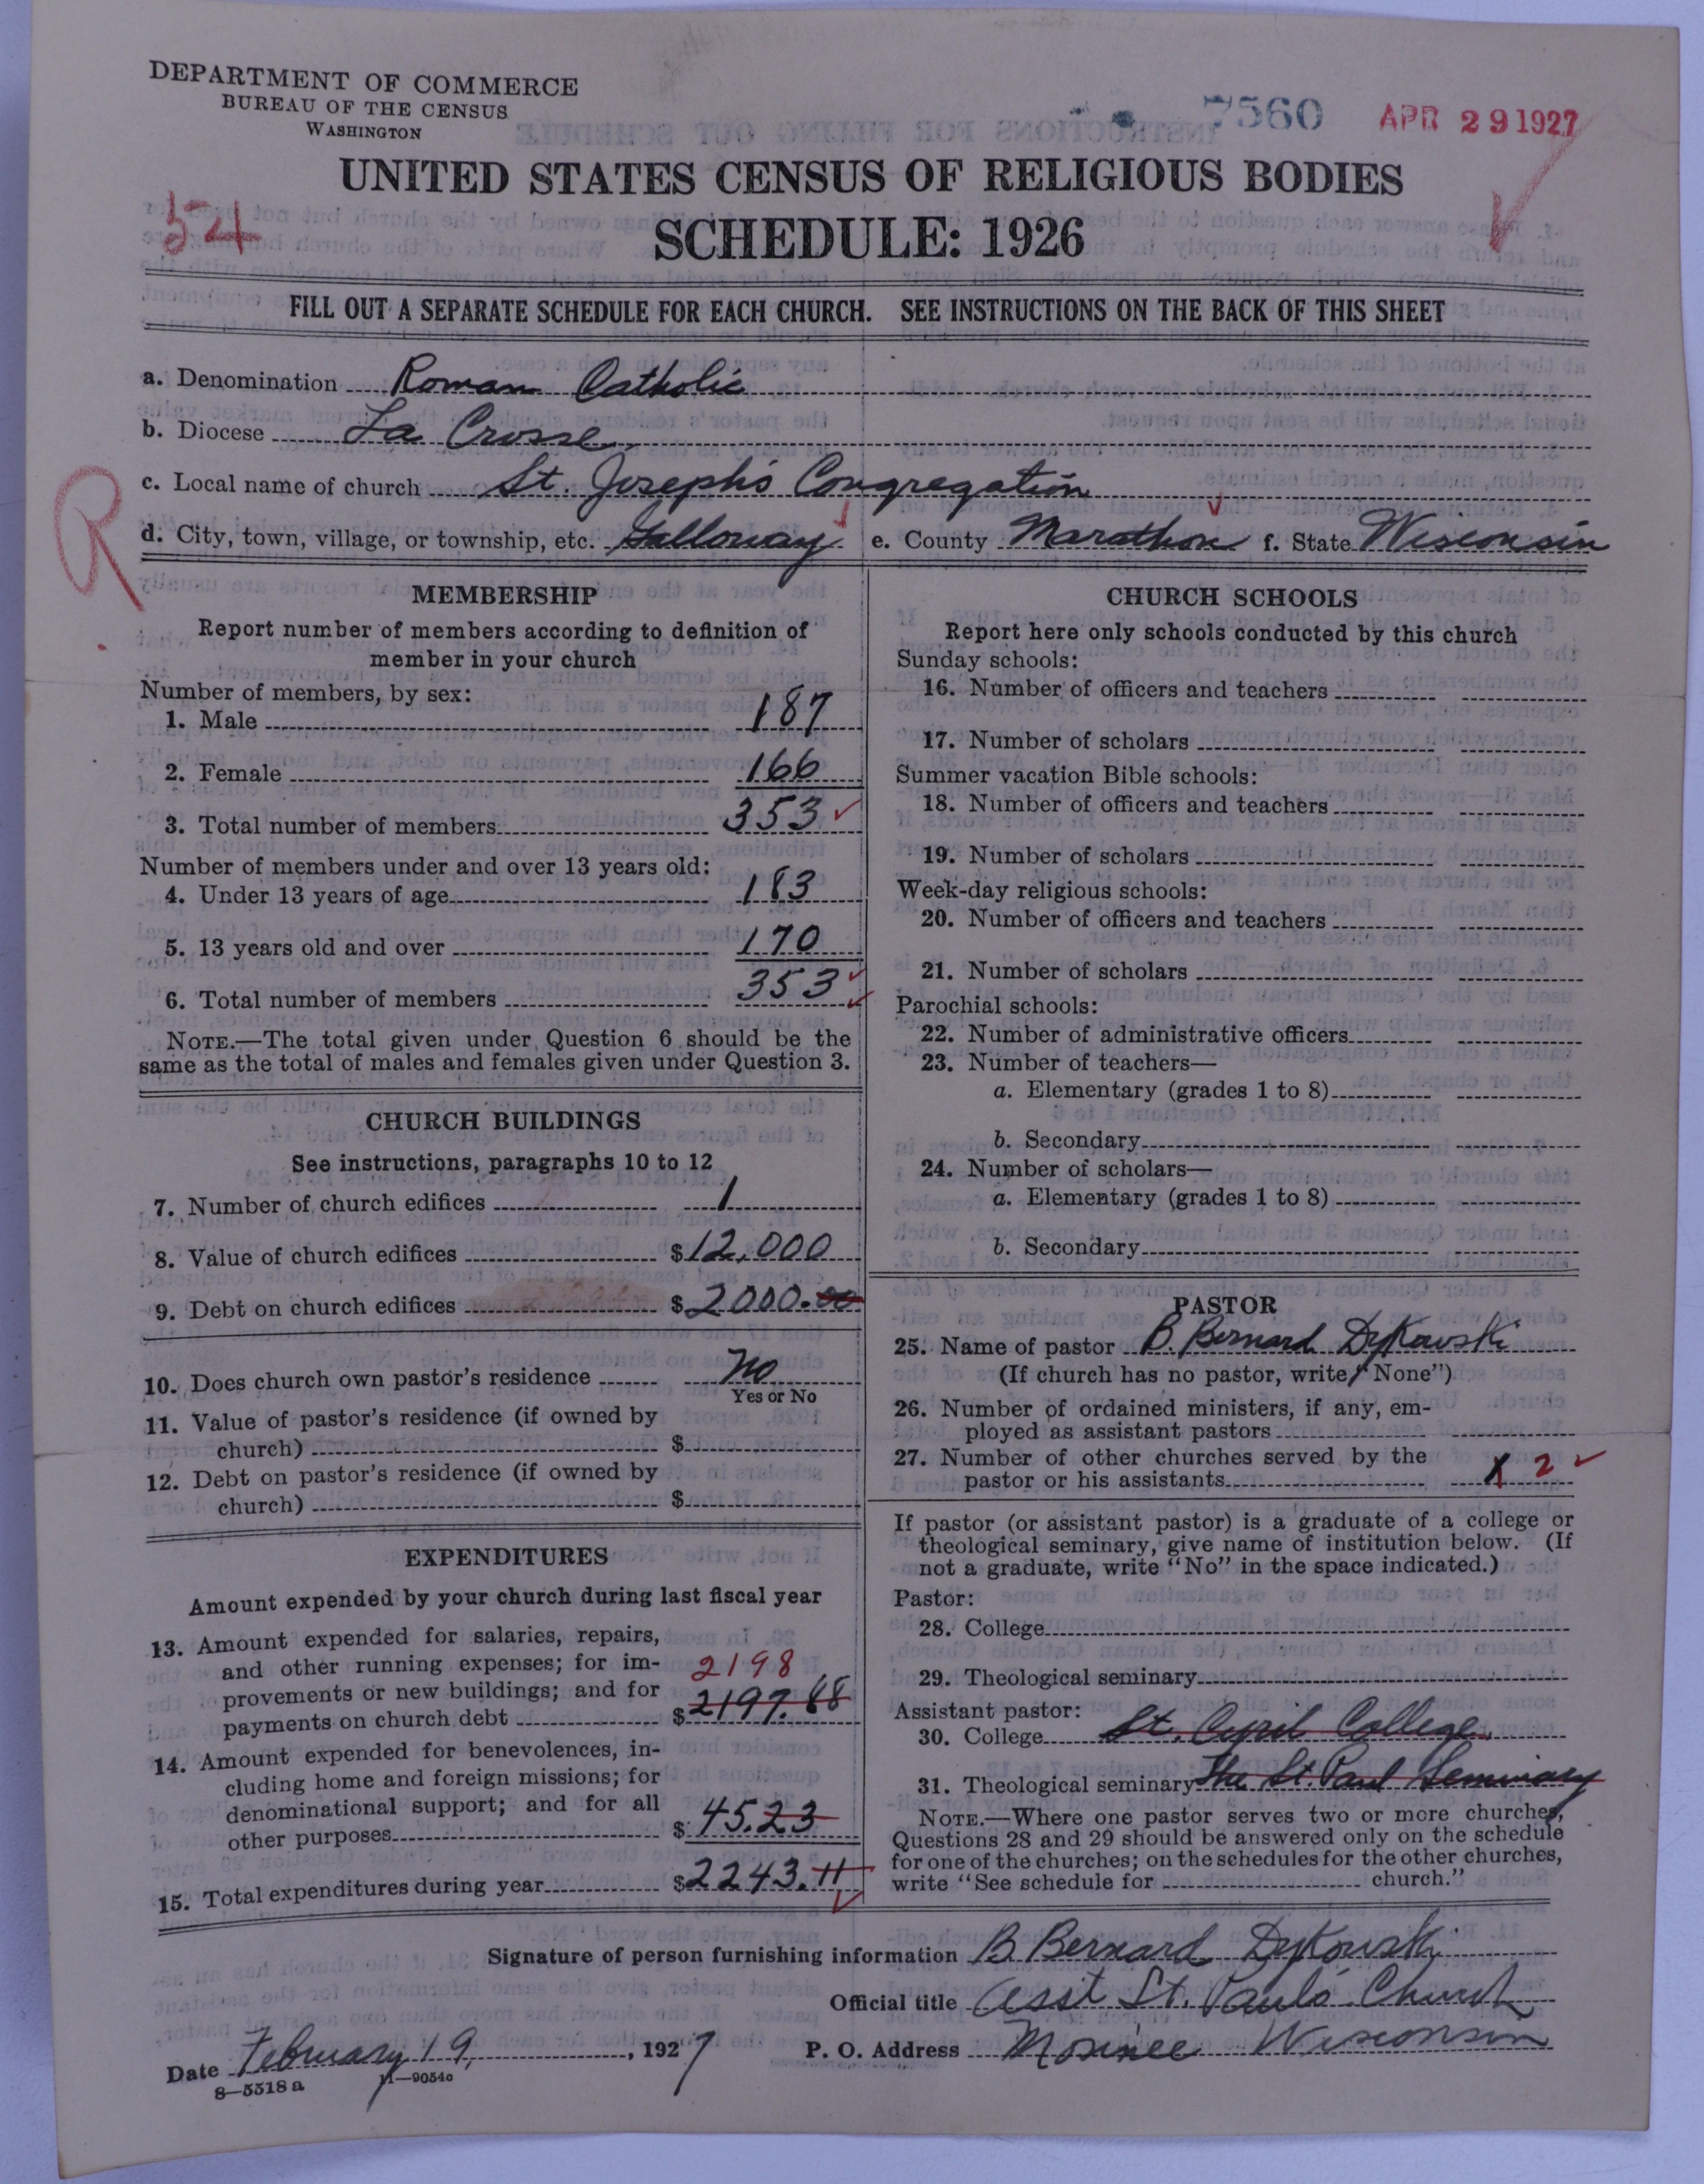 DEPARTMENT OF COMMERCE
BUREAU OF THE CENSUS
WASHINGTON
7560
APR 29 1927
UNITED STATES CENSUS OF RELIGIOUS BODIES
SCHEDULE: 1926
FILL OUT A SEPARATE SCHEDULE FOR EACH CHURCH. SEE INSTRUCTIONS ON THE BACK OF THIS SHEET
a. Denomination Roman Catholic
b. Diocese La Crosse
R
c. Local name of church St. Joseph's Congregation
d. City, town, village, or township, etc. Galloway e. County Marathon f. State Wisconsin
MEMBERSHIP
Report number of members according to definition of
member in your church
Number of members, by sex:
1. Male 187
2. Female 166
3. Total number of members 353
Number of members under and over 13 years old:
4. Under 13 years of age 183
5. 13 years old and over 170
6. Total number of members 353
NOTE.—The total given under Question 6 should be the
same as the total of males and females given under Question 3.
CHURCH BUILDINGS
See instructions, paragraphs 10 to 12
7. Number of church edifices 1
8. Value of church edifices $12,000
9. Debt on church edifices $2000.00
10. Does church own pastor's residence No
Yes or No
11. Value of pastor's residence (if owned by
church) $
12. Debt on pastor's residence (if owned by
church) $
EXPENDITURES
Amount expended by your church during last fiscal year
13. Amount expended for salaries, repairs,
and other running expenses; for im- 2198
provements or new buildings; and for
payments on church debt $2197.88
14. Amount expended for benevolences, in-
cluding home and foreign missions; for
denominational support; and for all
other purposes $45.23
15. Total expenditures during year $2243.11
CHURCH SCHOOLS
Report here only schools conducted by this church
Sunday schools:
16. Number of officers and teachers
17. Number of scholars
Summer vacation Bible schools:
18. Number of officers and teachers
19. Number of scholars
Week-day religious schools:
20. Number of officers and teachers
21. Number of scholars
Parochial schools:
22. Number of administrative officers
23. Number of teachers—
a. Elementary (grades 1 to 8)
b. Secondary
24. Number of scholars—
a. Elementary (grades 1 to 8)
b. Secondary
PASTOR
25. Name of pastor B. Bernard Dykowski
(If church has no pastor, write "None")
26. Number of ordained ministers, if any, em-
ployed as assistant pastors
27. Number of other churches served by the
pastor or his assistants 2
If pastor (or assistant pastor) is a graduate of a college or
theological seminary, give name of institution below. (If
not a graduate, write "No" in the space indicated.)
Pastor:
28. College
29. Theological seminary
Assistant pastor:
30. College St. Cyril College
31. Theological seminary The St. Paul Seminary
NOTE.—Where one pastor serves two or more churches,
Questions 28 and 29 should be answered only on the schedule
for one of the churches; on the schedules for the other churches,
write "See schedule for church."
Signature of person furnishing information B Bernard Dykowski
Official title Asst St. Paul's Church
Date February 19, 1927 P. O. Address Mosinee Wisconsin
8—5518 a 11—9054c